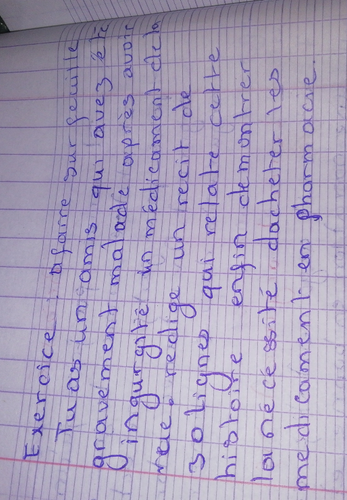 Exercice : à faire sur feuille
Tu as un amis qui avez été
gravement malade après avoir
ingurgité un médicament de la
rue. rédige un récit de
30 lignes qui relate cette
histoire enfin demontrer
la nécessité d'acheter les
medicament en pharmacie.